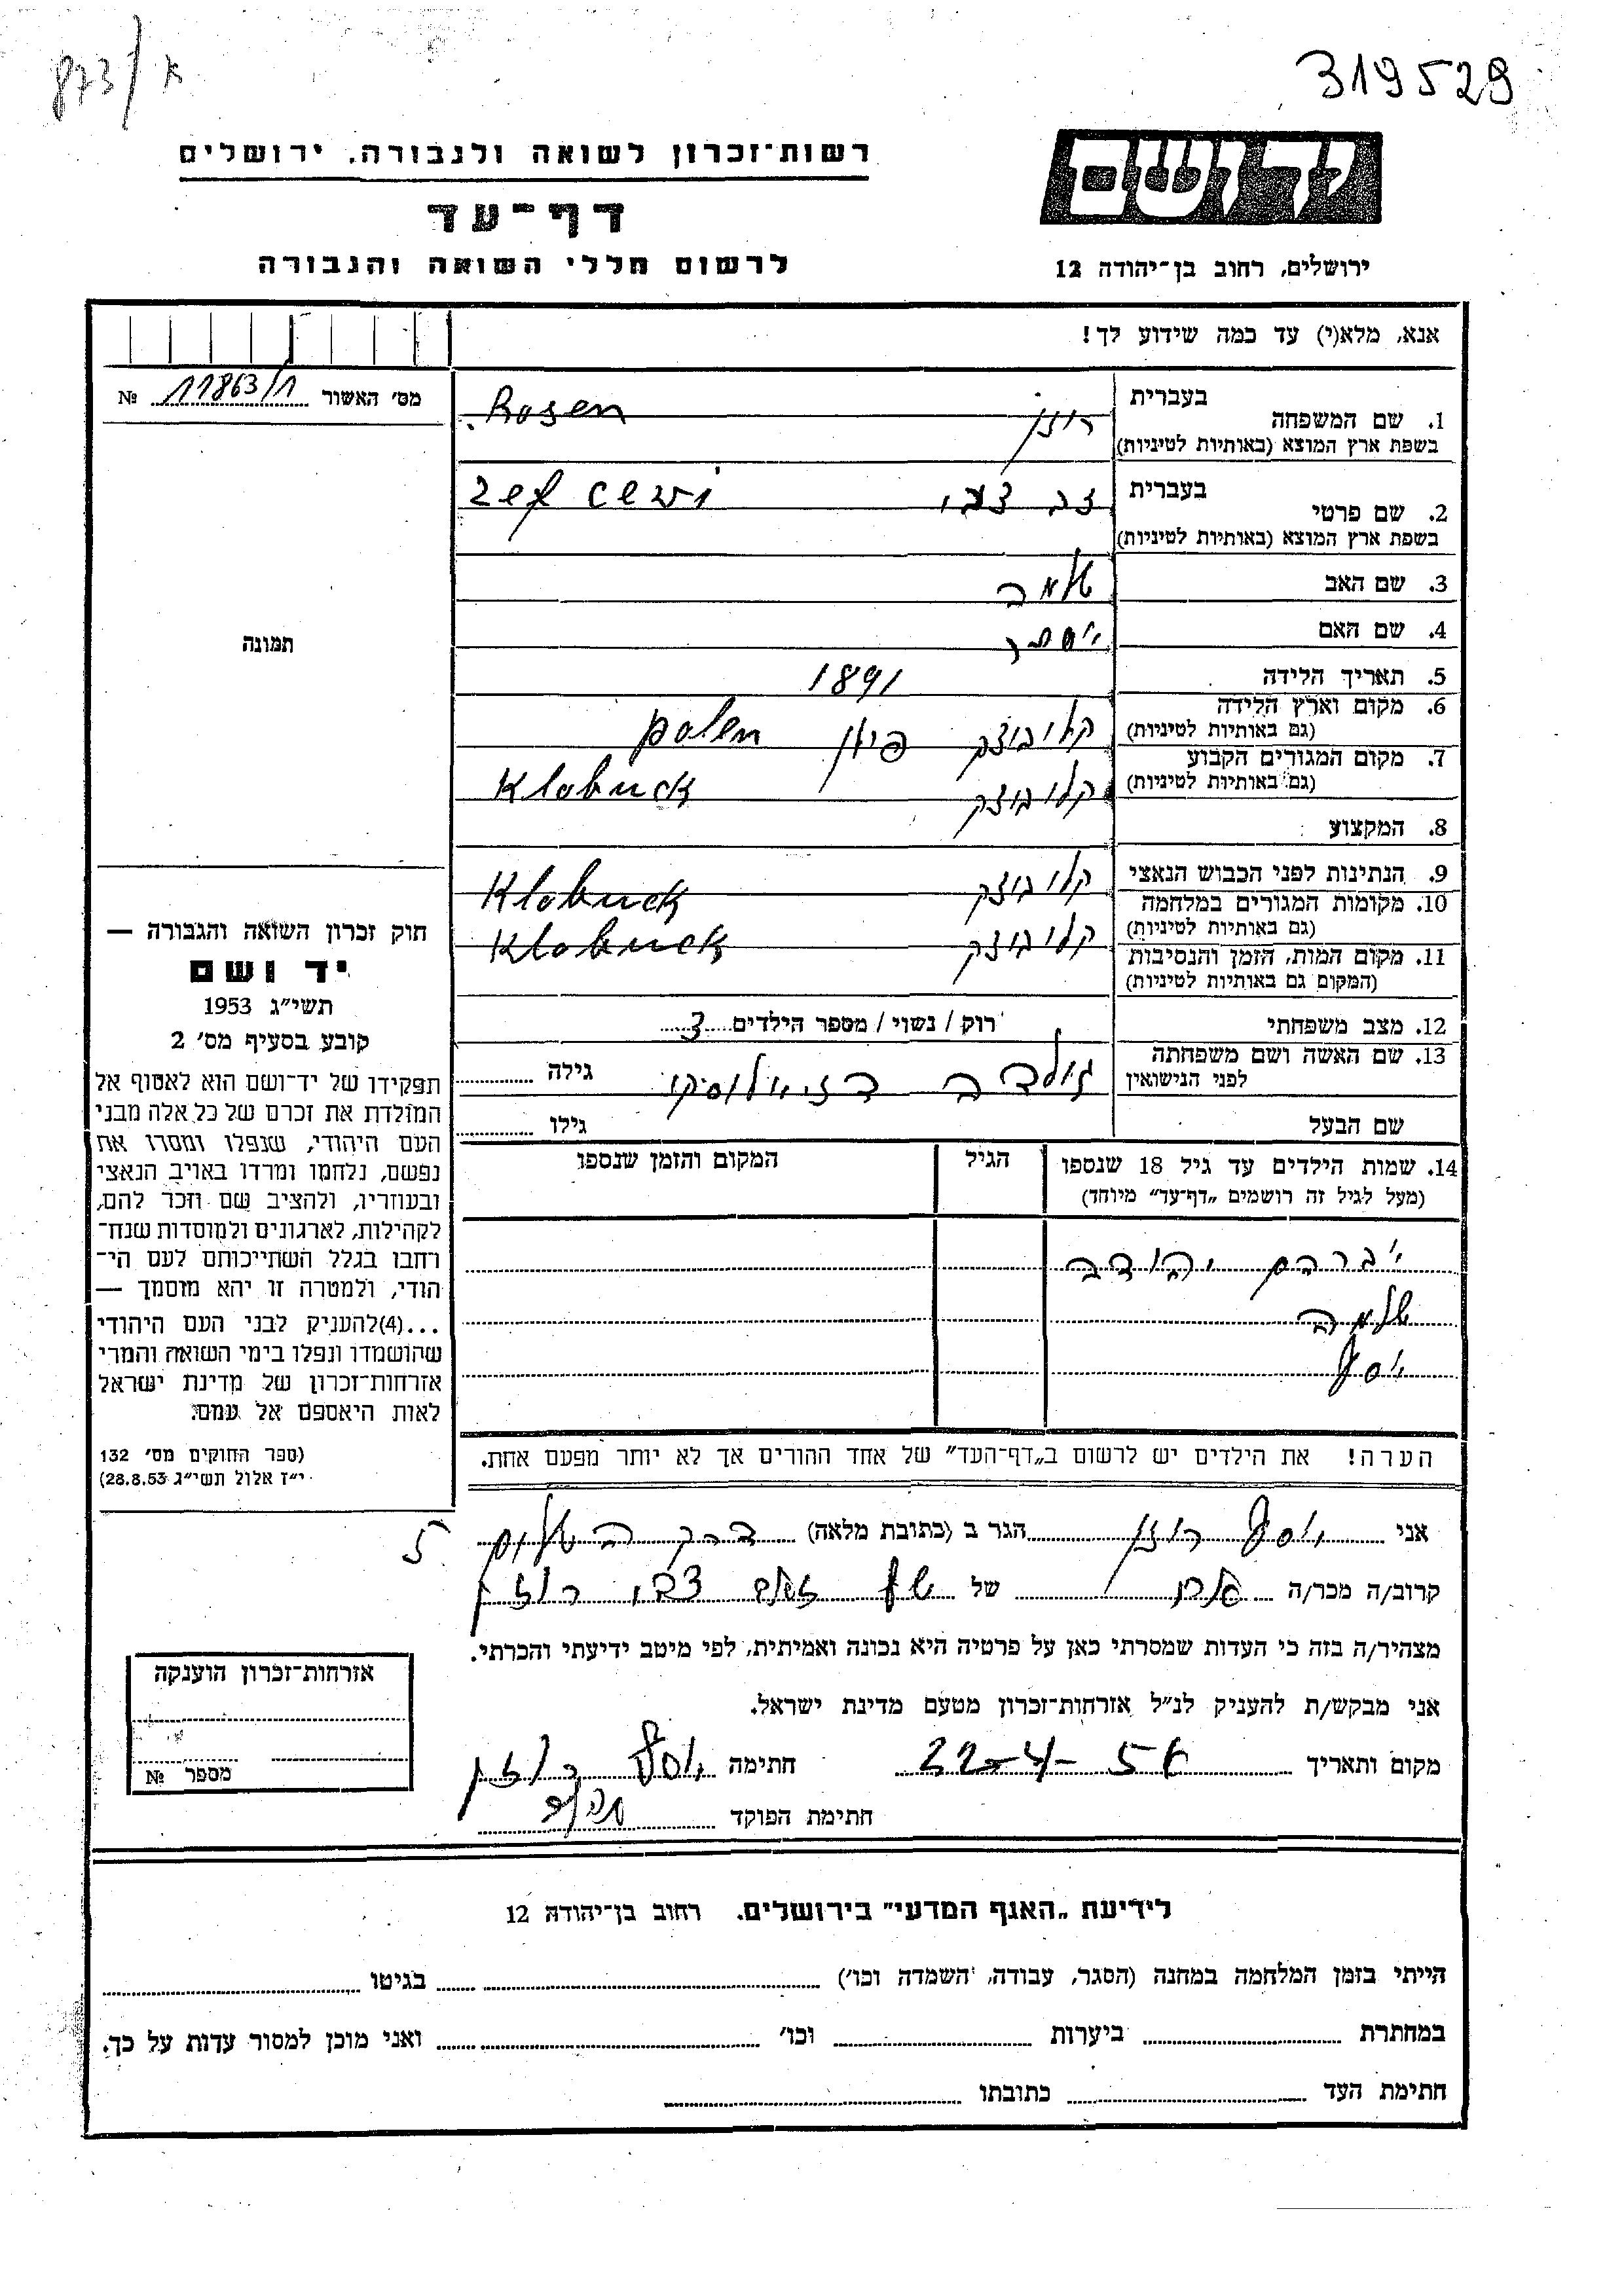 873/א
319529
יד ושם
רשות־זכרון לשואה ולגבורה, ירושלים
דף־עד
לרשום חללי השואה והגבורה
ירושלים, רחוב בן־יהודה 12
אנא, מלא(י) עד כמה שידוע לך!
מס׳ האשור 11863/1 №
1. שם המשפחה
בעברית רוזן
בשפת ארץ המוצא (באותיות לטיניות) Rosen
2. שם פרטי
בעברית זב צבי
בשפת ארץ המוצא (באותיות לטיניות) zef cewi
3. שם האב שלמה
4. שם האם
5. תאריך הלידה 1891
6. מקום וארץ הלידה
(גם באותיות לטיניות) קלובוצק פולין polen
7. מקום המגורים הקבוע
(גם באותיות לטיניות) קלובוצק Klobuck
8. המקצוע
9. הנתינות לפני הכבוש הנאצי קלובוצק Klobuck
10. מקומות המגורים במלחמה
(גם באותיות לטיניות) קלובוצק Klobuck
11. מקום המות, הזמן והנסיבות
(המקום גם באותיות לטיניות)
12. מצב משפחתי רוק / נשוי / מספר הילדים 3
13. שם האשה ושם משפחתה
לפני הנישואין גולדה גילה
שם הבעל גילו
14. שמות הילדים עד גיל 18 שנספו
(מעל לגיל זה רושמים „דף־עד” מיוחד)
הגיל
המקום והזמן שנספו
אברהם יהודה
שלמה
יוסף
הערה! את הילדים יש לרשום ב„דף־העד” של אחד ההורים אך לא יותר מפעם אחת.
תמונה
חוק זכרון השואה והגבורה —
יד ושם
תשי״ג 1953
קובע בסעיף מס׳ 2
תפקידו של יד־ושם הוא לאסוף אל
המולדת את זכרם של כל אלה מבני
העם היהודי, שנפלו ומסרו את
נפשם, נלחמו ומרדו באויב הנאצי
ובעוזריו, ולהציב שם וזכר להם,
לקהילות, לארגונים ולמוסדות שנח־
רחבו בגלל השתייכותם לעם הי־
הודי, ולמטרה זו יהא מוסמך —
...(4)להעניק לבני העם היהודי
שהושמדו ונפלו בימי השואה והמרי
אזרחות־זכרון של מדינת ישראל
לאות היאספם אל עמם.
(ספר החוקים מס׳ 132
י״ז אלול תשי״ג 28.8.53)
אני יוסף רוזן הגר ב (כתובת מלאה) דרך השלום 5
קרוב/ה מכר/ה של צבי רוזן
מצהיר/ה בזה כי העדות שמסרתי כאן על פרטיה היא נכונה ואמיתית, לפי מיטב ידיעתי והכרתי.
אני מבקש/ת להעניק לנ״ל אזרחות־זכרון מטעם מדינת ישראל.
מקום ותאריך 22-4-56 חתימה יוסף רוזן
חתימת הפוקד
אזרחות־זכרון הוענקה
מספר №
לידיעת „האגף המדעי” בירושלים. רחוב בן־יהודה 12
הייתי בזמן המלחמה במחנה (הסגר, עבודה, השמדה וכו׳) בגיטו
במחתרת ביערות וכו׳ ואני מוכן למסור עדות על כך.
חתימת העד כתובתו